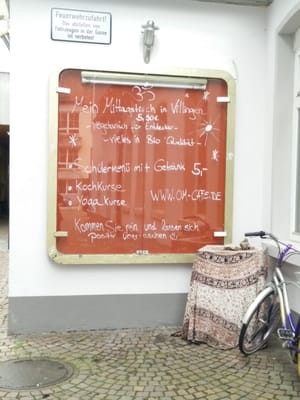 Feuerwehrzufahrt!
Das abstellen von
Fahrzeugen in der Gasse
ist verboten!
ॐ
Mein Mittagstisch in Villingen
5,50€
- vegetarisch für Entdecker -
- vieles in Bio Qualität -
Schülermenü mit Getränk 5,-
• Kochkurse
• Yoga kurse
WWW.OM-CAFE.DE
Kommen Sie rein und lassen sich
positiv überraschen